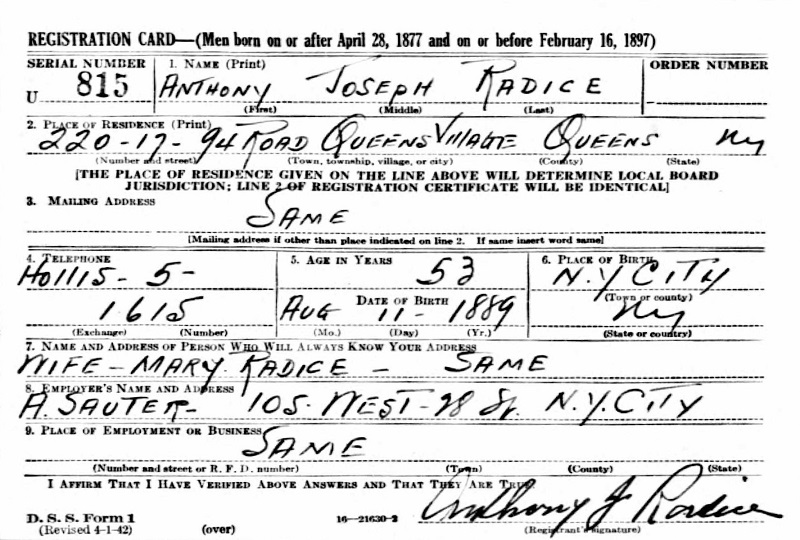 REGISTRATION CARD—(Men born on or after April 28, 1877 and on or before February 16, 1897)
SERIAL NUMBER 1. NAME (Print) ORDER NUMBER
U 815 ANTHONY JOSEPH RADICE
(First) (Middle) (Last)
2. PLACE OF RESIDENCE (Print)
220-17-94 ROAD QUEENS VILLAGE QUEENS NY
(Number and street) (Town, township, village, or city) (County) (State)
[THE PLACE OF RESIDENCE GIVEN ON THE LINE ABOVE WILL DETERMINE LOCAL BOARD
JURISDICTION; LINE 2 OF REGISTRATION CERTIFICATE WILL BE IDENTICAL]
3. MAILING ADDRESS
SAME
[Mailing address if other than place indicated on line 2. If same insert word same]
4. TELEPHONE 5. AGE IN YEARS 6. PLACE OF BIRTH
HOLLIS-5- 53 N.Y CITY
DATE OF BIRTH (Town or county)
1615 AUG 11-1889 NY
(Exchange) (Number) (Mo.) (Day) (Yr.) (State or country)
7. NAME AND ADDRESS OF PERSON WHO WILL ALWAYS KNOW YOUR ADDRESS
WIFE-MARY RADICE - SAME
8. EMPLOYER'S NAME AND ADDRESS
A. SAUTER- 105-WEST-28 St. N.Y.CITY
9. PLACE OF EMPLOYMENT OR BUSINESS
SAME
(Number and street or R. F. D. number) (Town) (County) (State)
I AFFIRM THAT I HAVE VERIFIED ABOVE ANSWERS AND THAT THEY ARE TRUE.
Anthony J Radice
D. S. S. Form 1
(Revised 4-1-42) (over) 16—21630-2 (Registrant's signature)